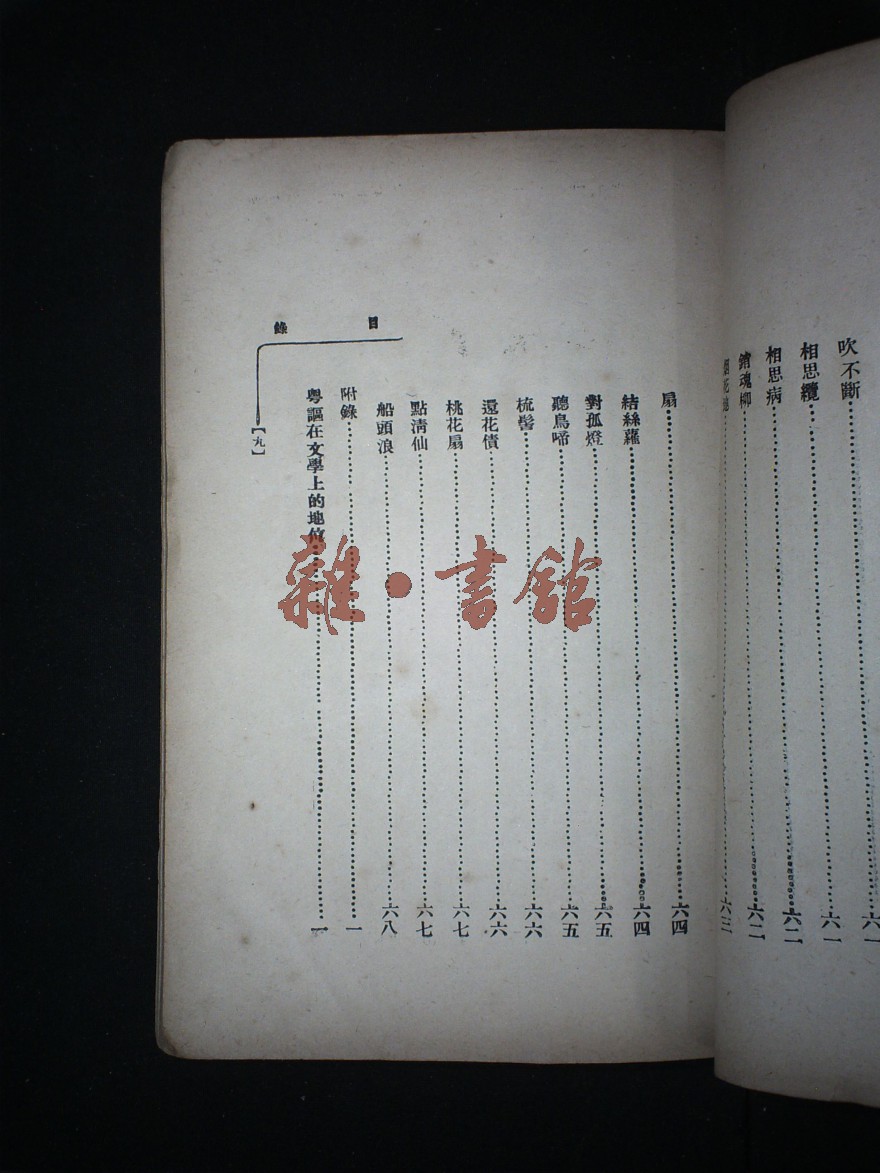 吹不斷⋯⋯六一
相思纜⋯⋯六一
相思病⋯⋯六二
銷魂柳⋯⋯六二
烟花地⋯⋯六三
目錄
扇⋯⋯六四
結絲蘿⋯⋯六四
對孤燈⋯⋯六五
聽鳥啼⋯⋯六五
梳髻⋯⋯六六
還花債⋯⋯六六
桃花扇⋯⋯六七
點清仙⋯⋯六七
船頭浪⋯⋯六八
附錄⋯⋯一
粵謳在文學上的地位⋯⋯一
【九】
雜·書館